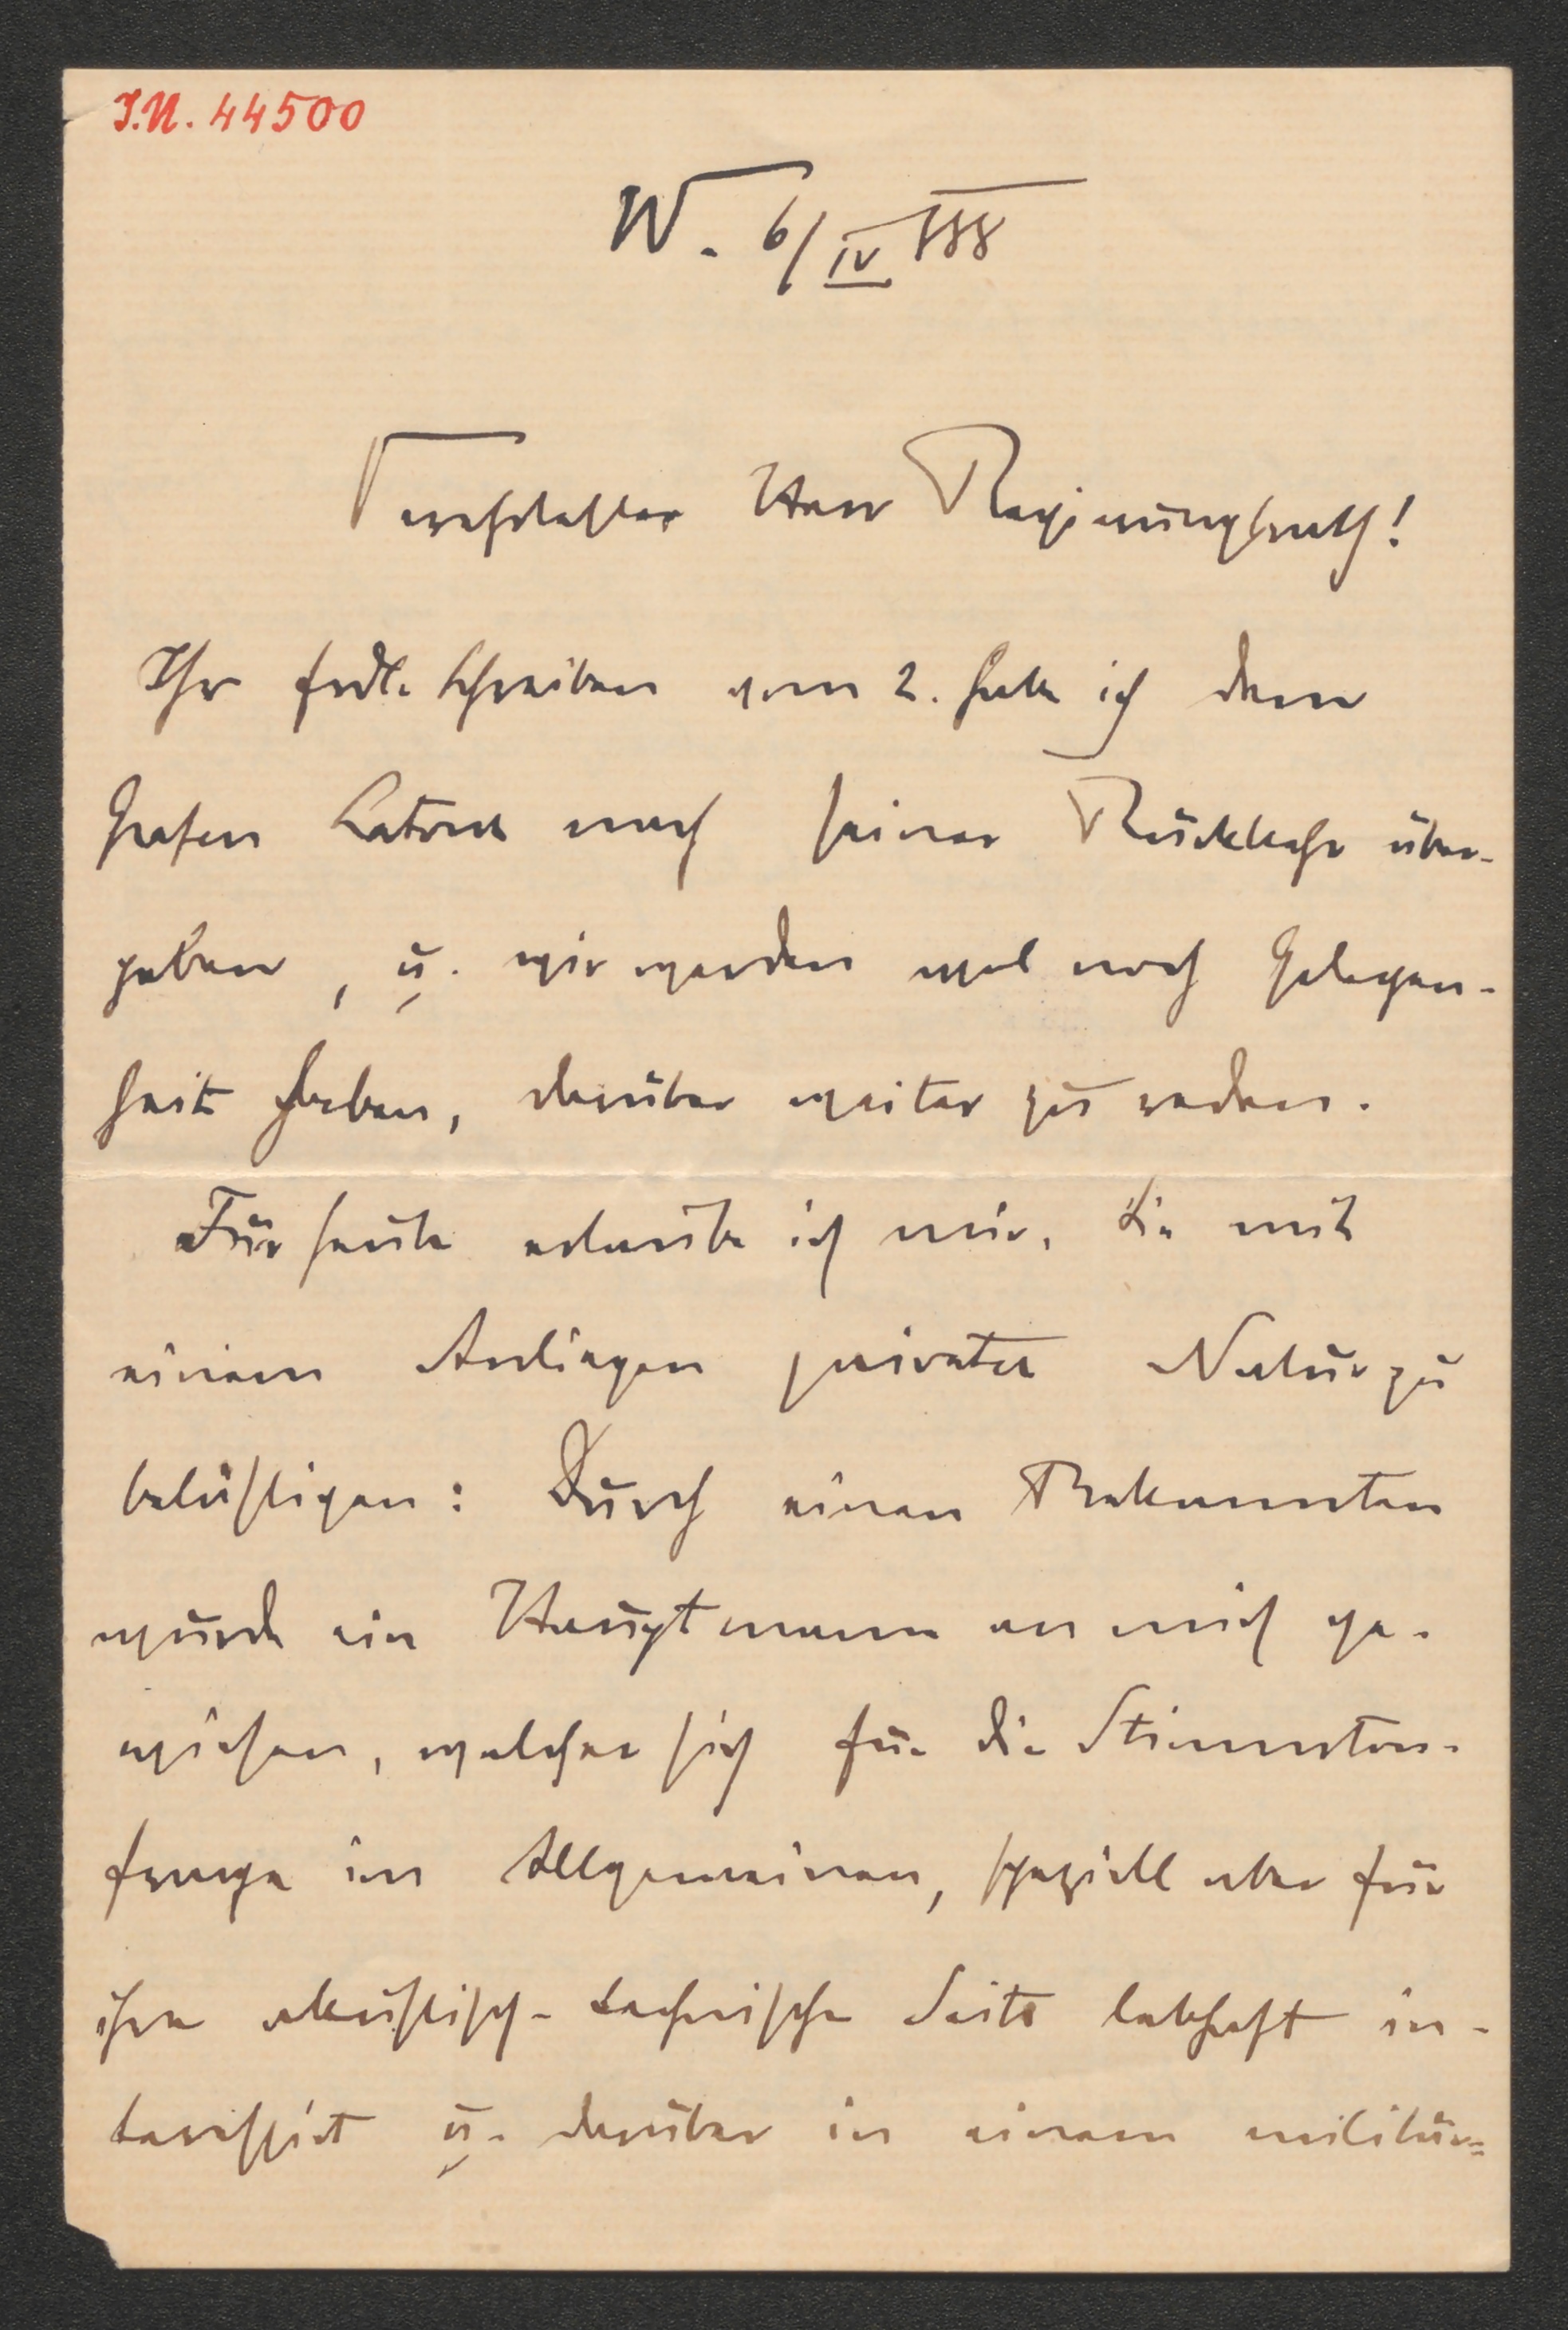 I.N. 44500
W. 6/IV 888
Verehrtester Herr Regierungsrath!
Ihr frdl. Schreiben vom 2. habe ich dem
Grafen Latour nach seiner Rückkehr über-
geben, u. wir werden wol noch Gelegen-
heit haben, darüber weiter zu reden.
Für heute erlaube ich mir, Sie mit
einem Anliegen privater Natur zu
belästigen: Durch einen Bekannten
wurde ein Hauptmann an mich ge-
wiesen, welcher sich für die Stimmton-
frage im Allgemeinen, speziell aber für
ihre akustisch-technische Seite lebhaft in-
teressirt u. darüber in einem militär=